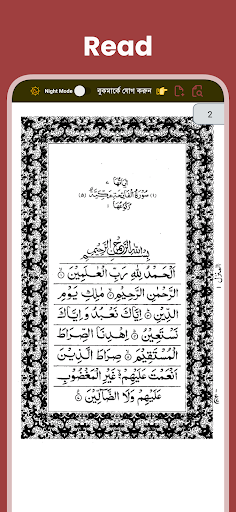 Read
Night Mode
বুকমার্কে যোগ করুন
2
اٰيَاتُهَا ٧
(١) سُوْرَةُ الْفَاتِحَةِ مَكِّيَّةٌ (٥)
رُكُوْعُهَا ١
بِسْمِ اللّٰهِ الرَّحْمٰنِ الرَّحِيْمِ
اَلْحَمْدُ لِلّٰهِ رَبِّ الْعٰلَمِيْنَ
الرَّحْمٰنِ الرَّحِيْمِ مٰلِكِ يَوْمِ
الدِّيْنِ اِيَّاكَ نَعْبُدُ وَاِيَّاكَ
نَسْتَعِيْنُ اِهْدِنَا الصِّرَاطَ
الْمُسْتَقِيْمَ صِرَاطَ الَّذِيْنَ
اَنْعَمْتَ عَلَيْهِمْ غَيْرِ الْمَغْضُوْبِ
عَلَيْهِمْ وَلَا الضَّآلِّيْنَ